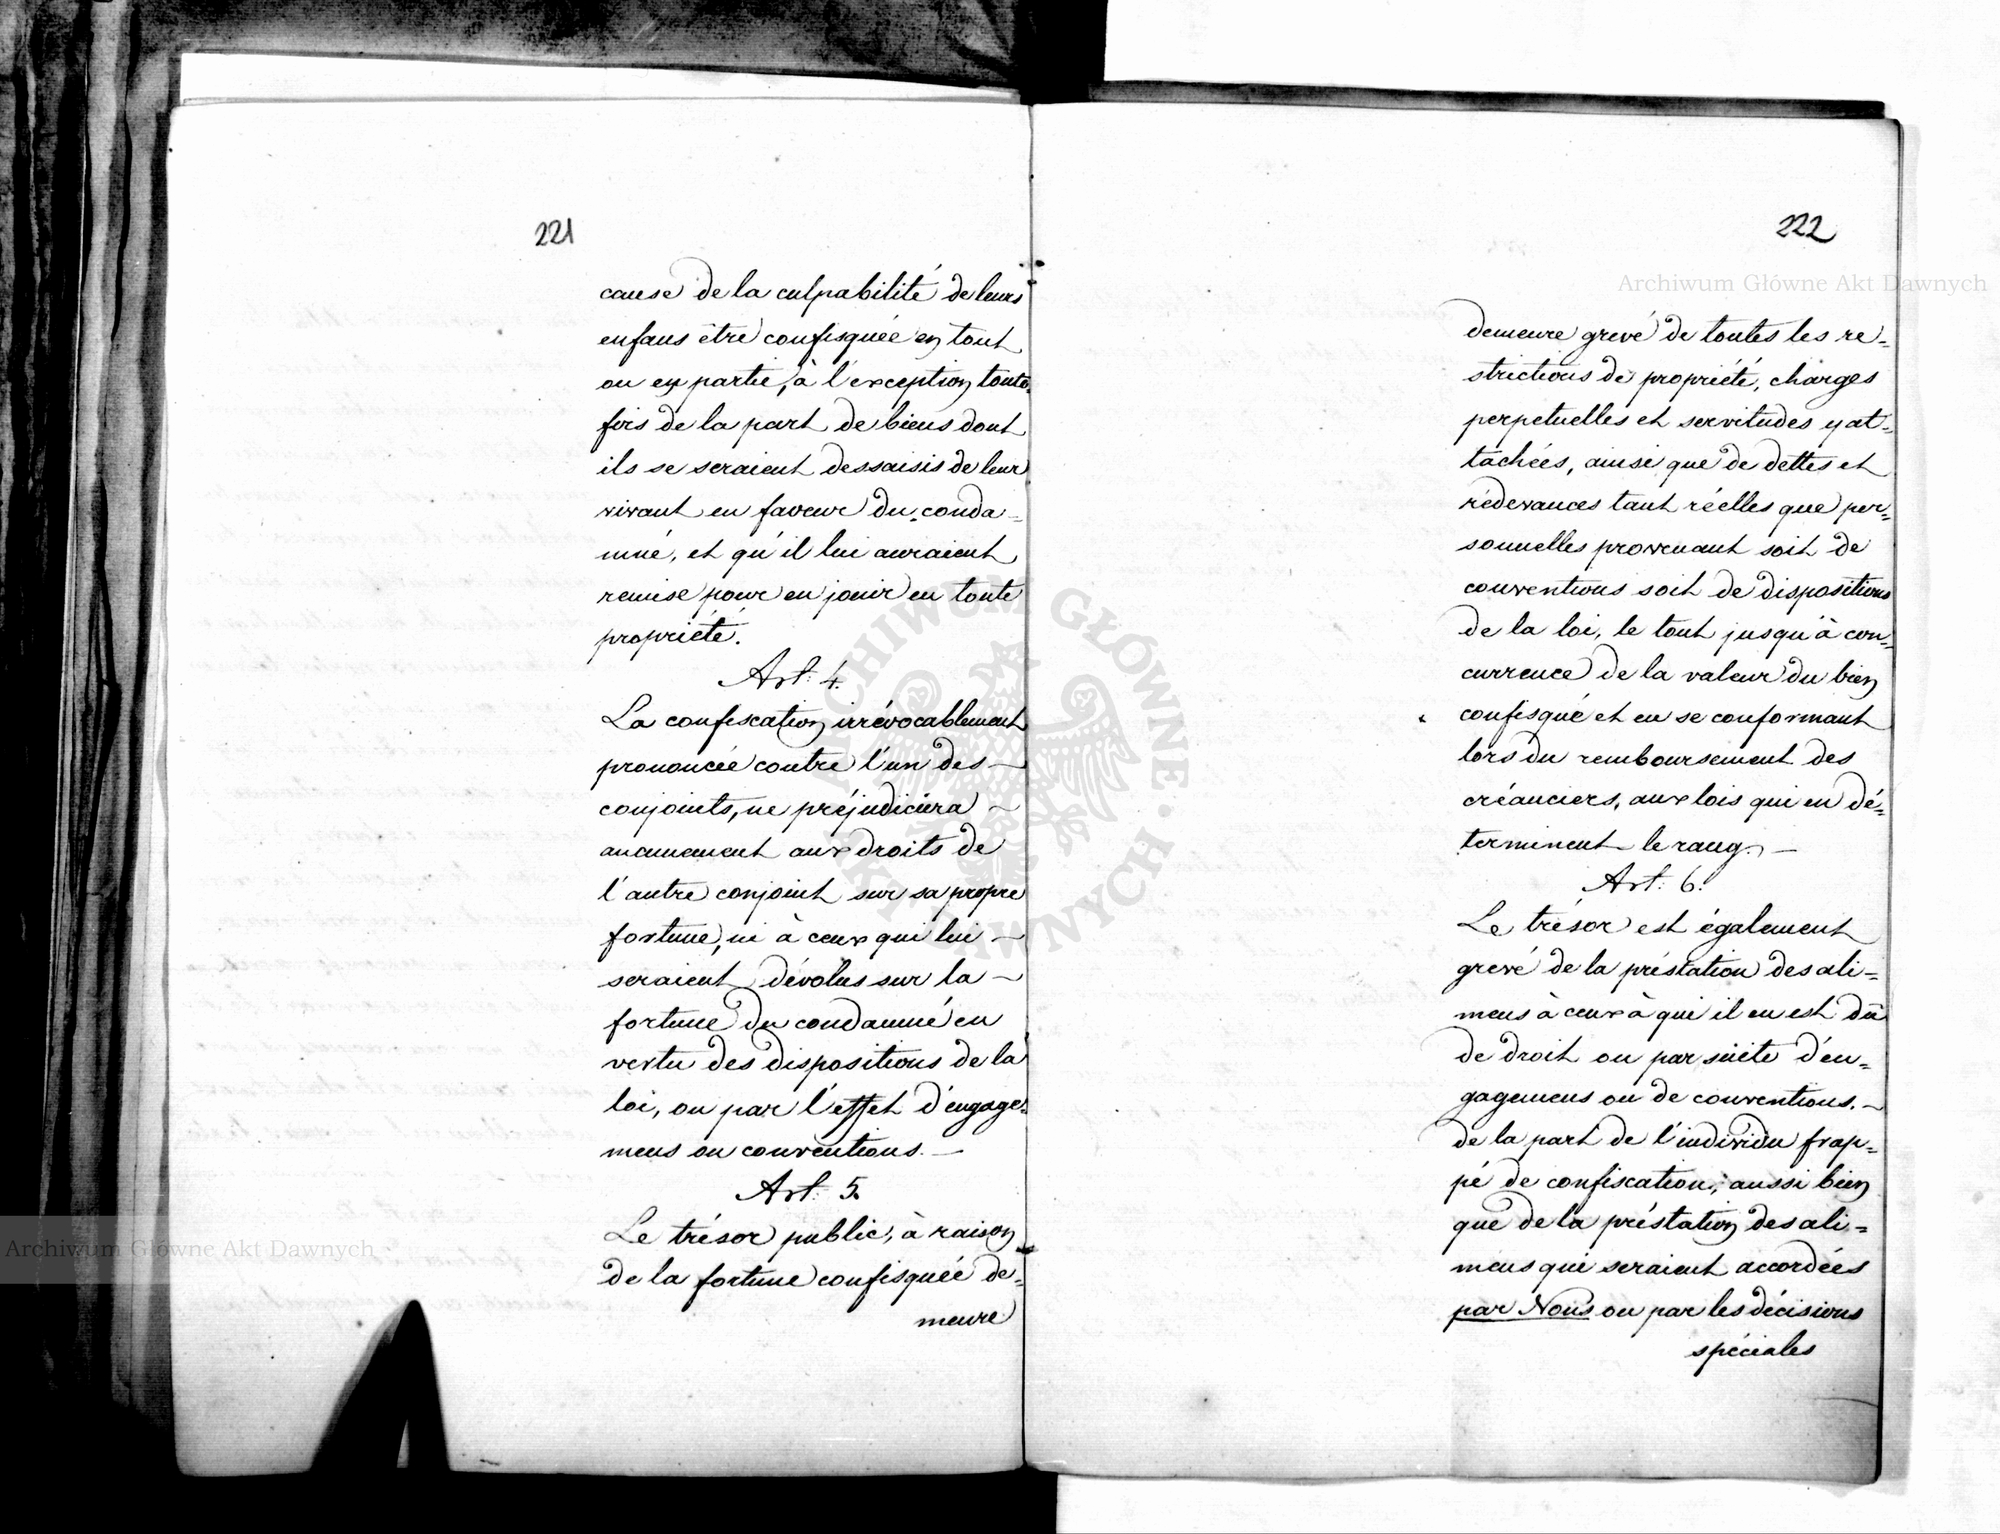 221
cause de la culpabilité de leurs
enfans être confisquée en tout
ou en partie, à l'exception toute-
fois de la part de biens dont
ils se seraient dessaisis de leur
vivant en faveur du conda-
mné, et qu'il lui auraient
remise pour en jouir en toute
propriété.
Art: 4.
La confiscation irrévocablement
prononcée contre l'un des —
conjoints, ne préjudiciera —
aucunement aux droits de
l'autre conjoint sur sa propre
fortune, ni à ceux qui lui —
seraient dévolus sur la —
fortune du condamné en
vertu des dispositions de la
loi, ou par l'effet d'engage-
mens ou conventions. —
Art: 5.
Le trésor public, à raison
de la fortune confisquée de-
meure
222
demeure grevé de toutes les re=
strictions de propriété, charges
perpetuelles et servitudes y at=
tachées, ainsi que de dettes et
rédevances tant réelles que per=
sonnelles provenant soit de
conventions soit de dispositions
de la loi, le tout jusqu'à con=
currence de la valeur du bien
confisqué et en se conformant
lors du remboursement des
créanciers, aux lois qui en dé=
terminent le rang. —
Art: 6.
Le trésor est également
grevé de la préstation des ali=
mens à ceux à qui il en est dû
de droit ou par suite d'en=
gagemens ou de conventions. —
de la part de l'individu frap=
pé de confiscation, aussi bien
que de la préstation des ali=
mens qui seraient accordées
par Nous ou par les décisions
spéciales
Archiwum Główne Akt Dawnych
Archiwum Główne Akt Dawnych
ARCHIWUM GŁÓWNE AKT DAWNYCH